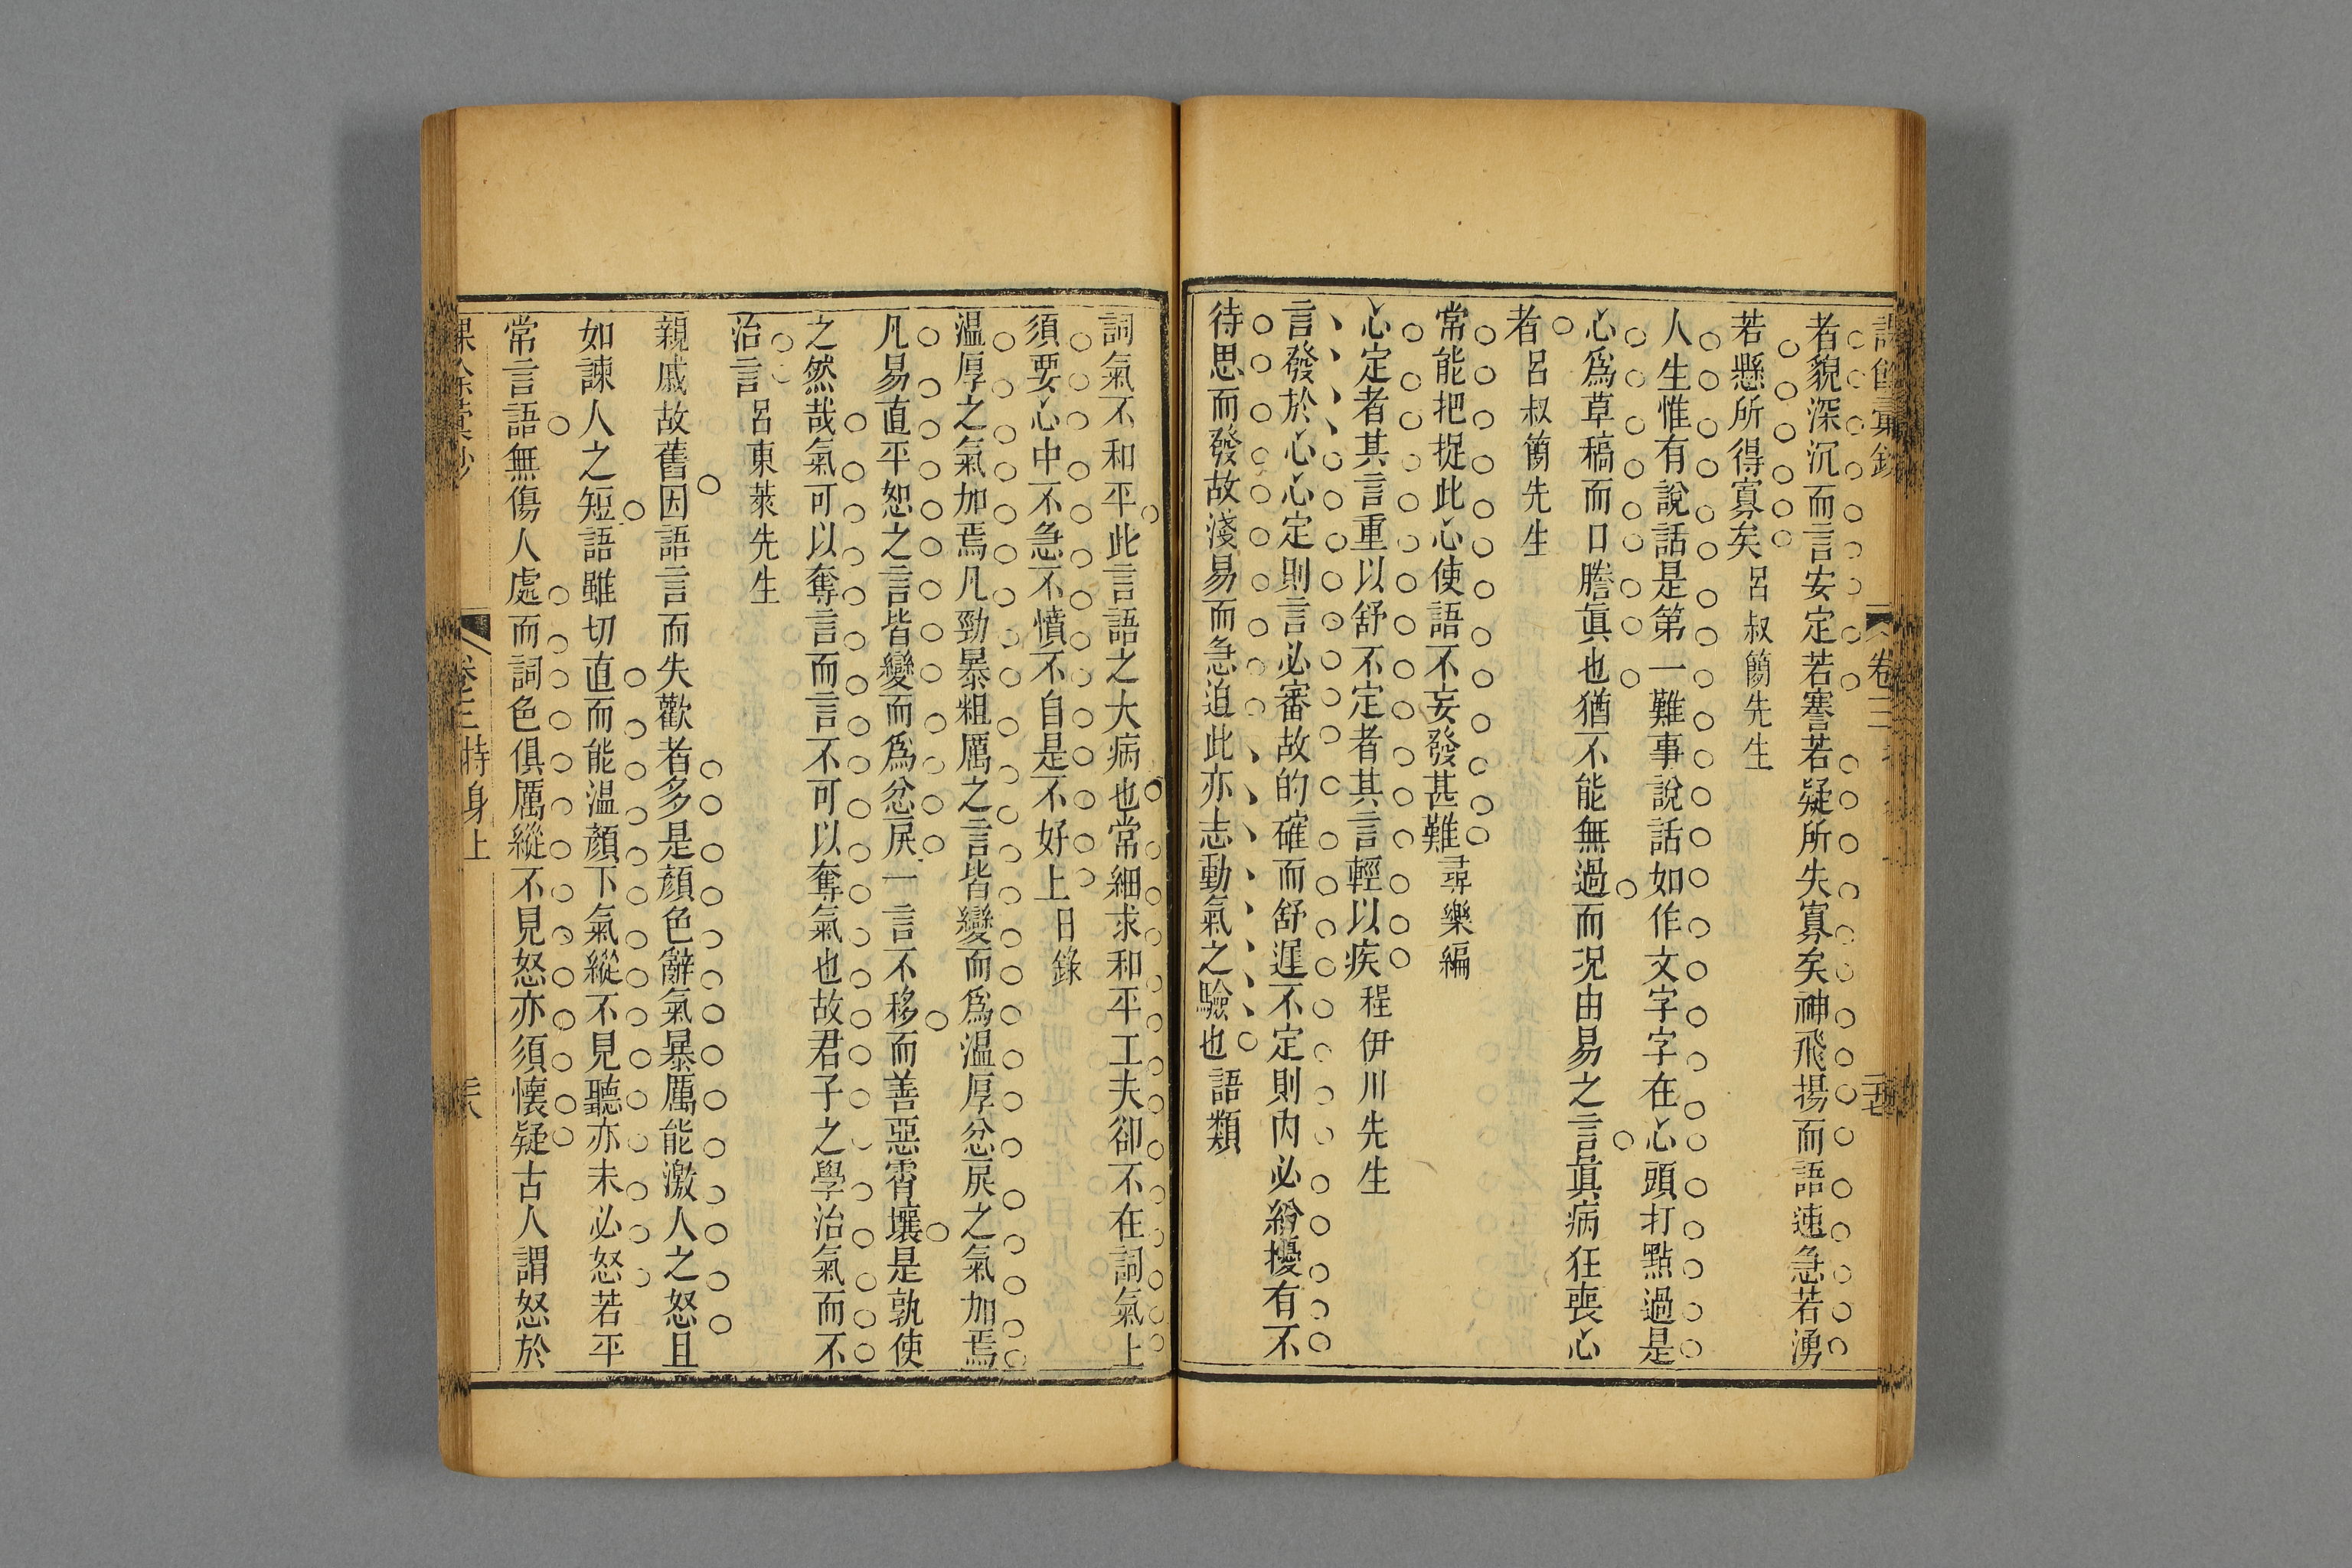 課餘彙鈔 卷三
者貌深沉而言安定若蹇若疑所失寡矣神飛揚而語速急若湧
若懸所得寡矣呂叔簡先生
人生惟有說話是第一難事說話如作文字字在心頭打點過是
心爲草稿而口謄眞也猶不能無過而况由易之言眞病狂喪心
者呂叔簡先生
常能把捉此心使語不妄發甚難尋樂編
心定者其言重以舒不定者其言輕以疾程伊川先生
言發於心心定則言必審故的確而舒遲不定則內必紛擾有不
待思而發故淺易而急迫此亦志動氣之驗也語類
詞氣不和平此言語之大病也常細求和平工夫卻不在詞氣上
須要心中不急不憤不自是不好上日錄
溫厚之氣加焉凡勁暴粗厲之言皆變而爲溫厚忿戾之氣加焉
凡易直平恕之言皆變而爲忿戾一言不移而善惡霄壤是孰使
之然哉氣可以奪言而言不可以奪氣也故君子之學治氣而不
治言呂東萊先生
親戚故舊因語言而失歡者多是顏色辭氣暴厲能激人之怒且
如諫人之短語雖切直而能溫顏下氣縱不見聽亦未必怒若平
常言語無傷人處而詞色俱厲縱不見怒亦須懷疑古人謂怒於
課餘彙鈔 卷三持身上 三六